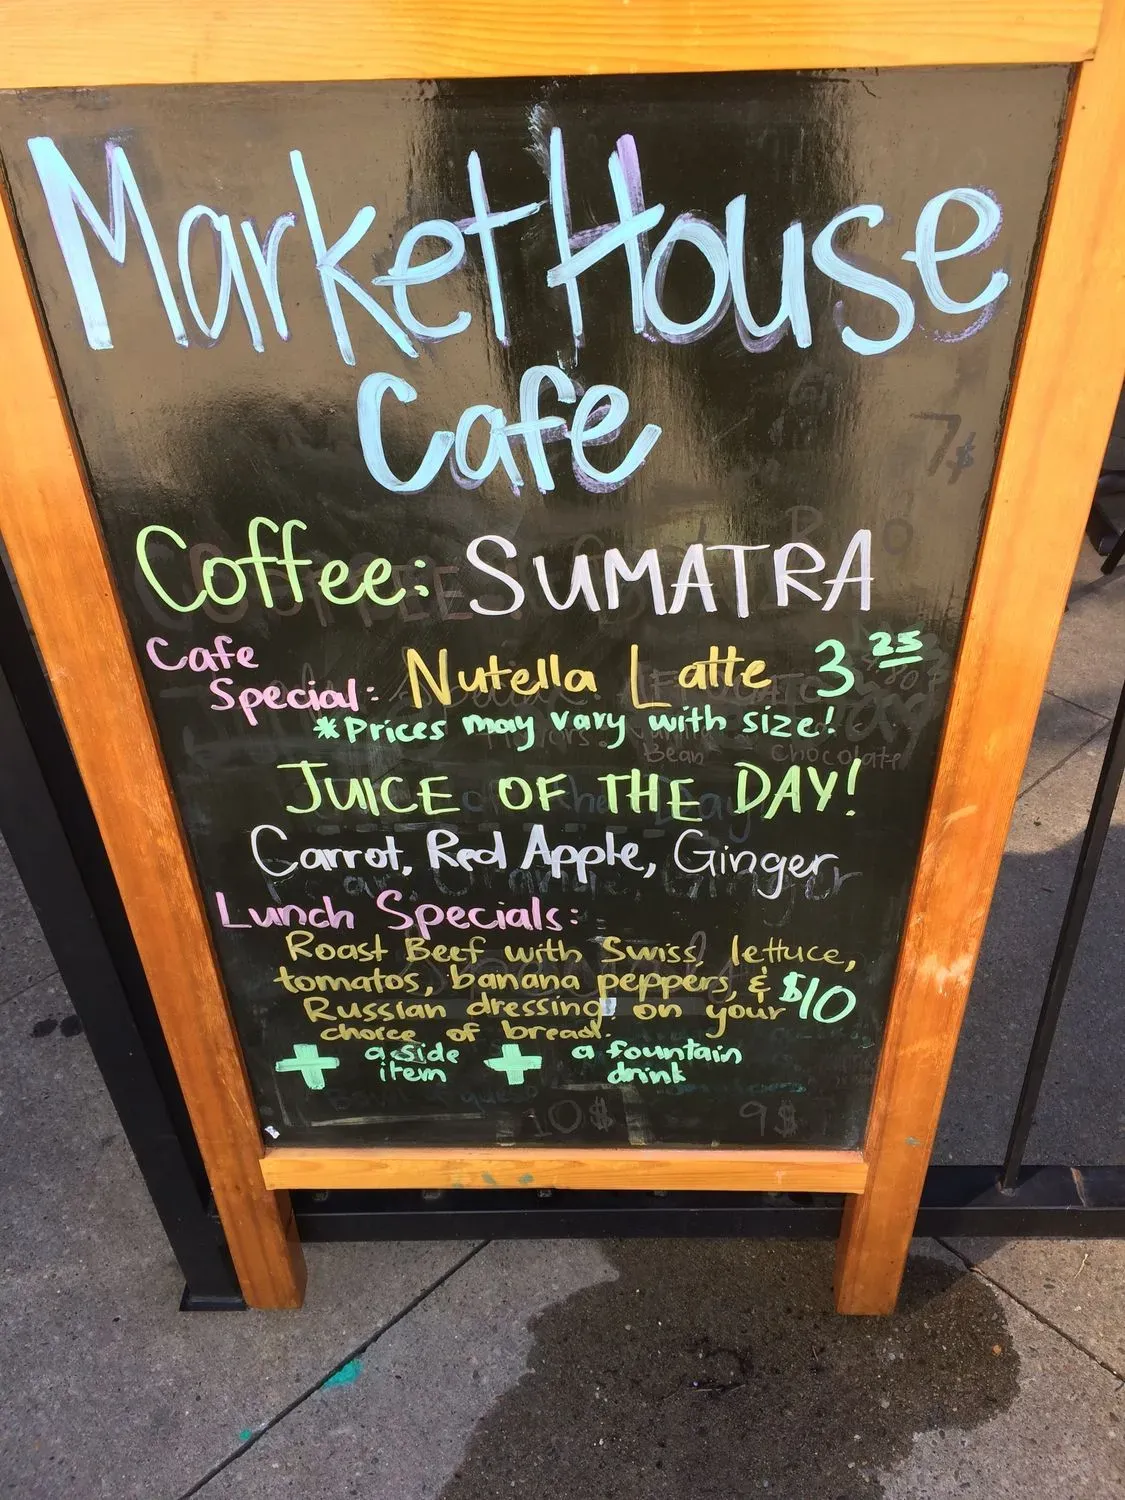 MarketHouse
Cafe
Coffee: SUMATRA
Cafe
Special: Nutella Latte 3 25
*Prices may vary with size!
JUICE OF THE DAY!
Carrot, Red Apple, Ginger
Lunch Specials:
Roast Beef with Swiss, lettuce,
tomatos, banana peppers, & $10
Russian dressing on your
choice of bread.
+ a side + a fountain
item drink
7$
Bean Chocolate
10$ 9$